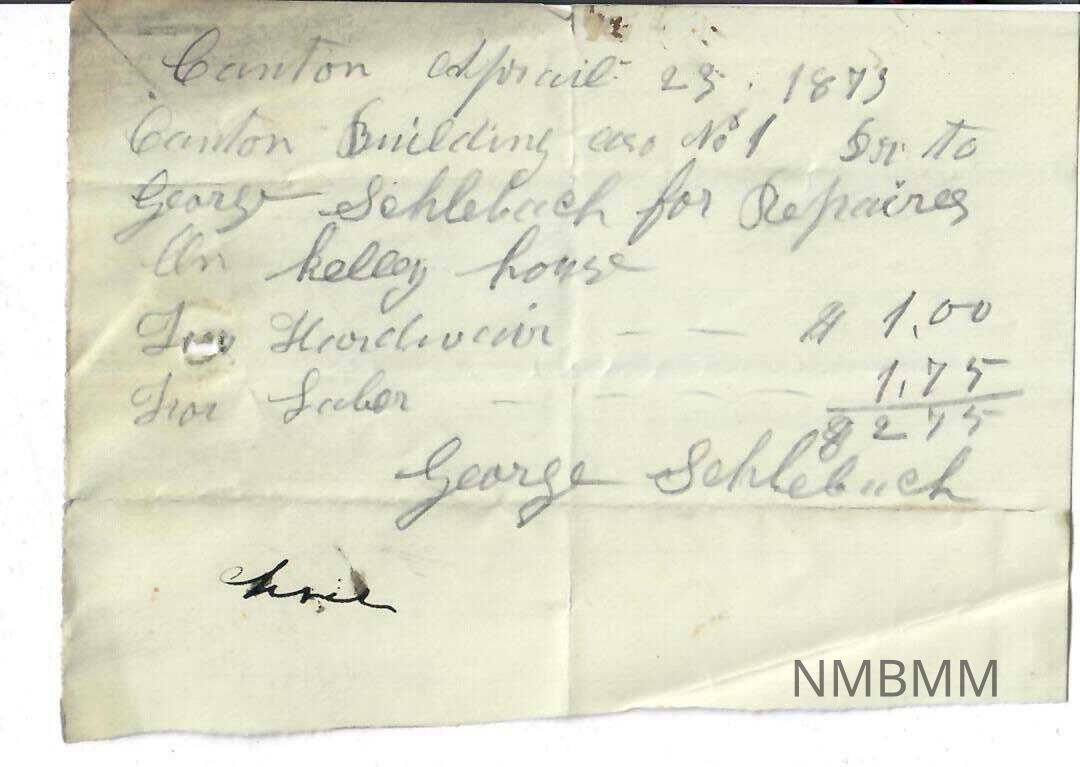 Canton Aprail 23. 1873
Canton Building aso No 1 Dr to
George Schlebach for Repaires
On kelley house
For Hardwair - - $ 1,00
For Laber - - - - 1,75
$ 2 75
George Schlebach
NMBMM